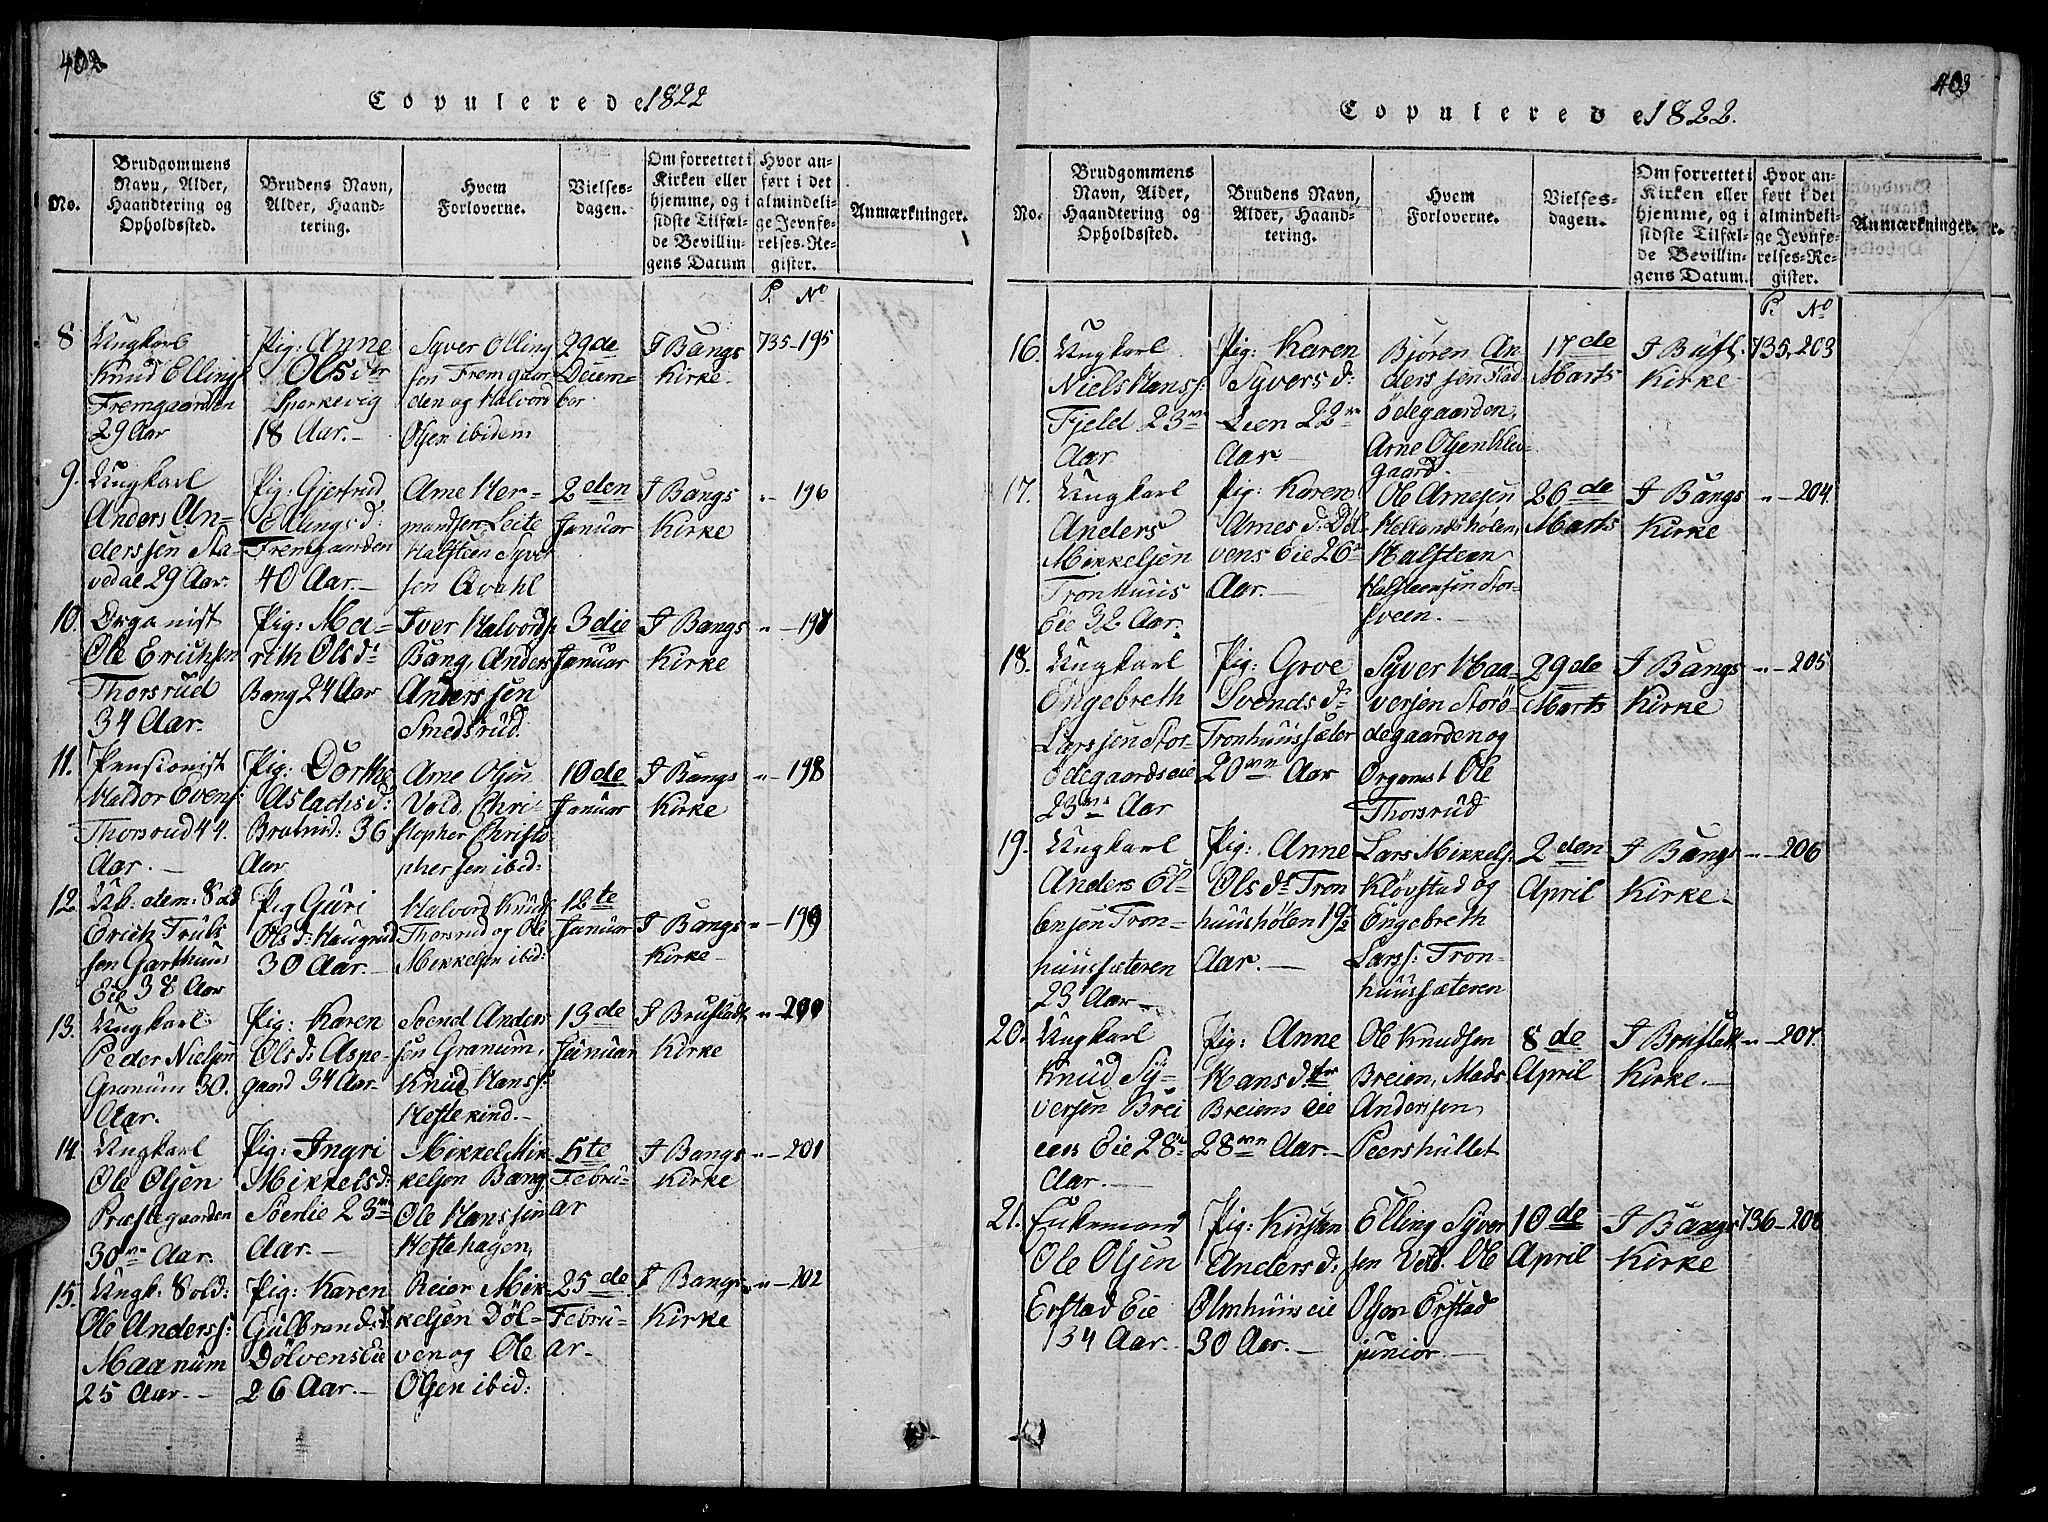 402
Copulerede 1822
No.
Brudgommens
Navn, Alder,
Haandtering og
Opholdssted.
Brudens Navn,
Alder, Haand-
tering.
Hvem
Forloverne.
Vielses-
dagen.
Om forrettet i
Kirken eller
hjemme, og i
sidste Tilfæl-
de Bevillin-
gens Datum
Hvor an-
ført i det
almindeli-
ge Jevnfø-
relses-Re-
gister.
Anmærkninger.
P. No
8
Ungkarl
Knud Ellings
Fremgaarden
29 Aar
Pig: Anne
Olsdtr
Sparkevig
18 Aar.-
Syver Elling
sen Fremgaar
den og Halvord
Olsen ibidem
29de
Decem-
ber
I Bangs
Kirke.
735-195
9.
Ungkarl
Anders An-
derssen Sta-
vedal 29 Aar.
Pig: Gjertrud
Ellingsd:
Fremgaarden
40 Aar.-
Arne Her-
mandsen Leite
Halsteen Syver
sen Qvahl
2den
Januar
I Bangs
Kirke
" - 196
10.
Organist
Ole Erichsen
Thorsrud
34 Aar.
Pig: Ma-
rith Olsdr
Bang 24 Aar
Iver Halvords
Bang, Anders
Anderssen
Smedsrud.
3die
Januar
I Bangs
Kirke
" - 197
11.
Pensionist
Haldor Evens:
Thorsrud 44.
Aar. -
Pig: Dorthe
Aslachsd:
Brutnid: 36
Aar
Arne Olsen
Vold, Chri-
stopher Christo
phersen ibid:
10de
Januar
I Bangs
Kirke
" - 198
12.
Uk. dem: Sold
Erich Truls
sen Garthuus
Eie 38 Aar
Pig Guri
Olsd: Haugrud
30 Aar. -
Halvord Knuds
Thorsrud og Ole
Mikkelsen ibid:
12te
Januar
I Bangs
Kirke-
" - 199
13.
Ungkarl
Peder Nielsen
Granum 30.
Aar.
Pig: Karen
Olsd: Aspe-
gaard 34 Aar.
Svend Anders
sen Granum.
Knud Hanss:
Heftekind.-
13de
Januar
I Brufladt
Kirke
" - 200
14.
Ungkarl
Ole Olsen
Præstegaarden
30 Aar.
Pig: Ingri
Mikkelsd:
Søerlie 23
Aar. -
Mikkel Mik-
kelsen Bang,
Ole Hanssen
Heftehagen,
5te
Febru-
ar
I Bangs
Kirke
" - 201
15.
Ungk: Sold:
Ole Anderss:
Maanum
25 Aar. -
Pig: Karen
Gulbrandsd
Dølvens Eie
26 Aar. -
Reier Mik-
kelsen Døl-
ven og Ole
Olsen ibid:
25de
Febru-
ar-
I Bangs
Kirke
" - 202
403
Copulerede 1822.
No.
Brudgommens
Navn, Alder,
Haandtering og
Opholdssted.
Brudens Navn,
Alder, Haand-
tering.
Hvem
Forloverne.
Vielses-
dagen.
Om forrettet i
Kirken eller
hjemme, og i
sidste Tilfæl-
de Bevillin-
gens Datum.
Hvor an-
ført i det
almindeli-
ge Jevnfø-
relses-Re-
gister.
Anmærkninger.
P. No
16.
Ungkarl
Niels Hanss:
Fjeld 23
Aar
Pig: Karen
Syversd:
Lien 22
Aar
Bjøren An
derssen Stad
ødegaarden,
Arne Olsen
gaard.
17de
Marts
I Bufl.
Kirke
735. 203
17.
Ungkarl
Anders
Mikkelsen
Tronhuus
Eie 32 Aar.
Pig: Karen
Arnesd: Døl-
vens Eie 26
Aar. -
Ole Arnesen
Hellandshølen,
Halsteen
Halsteensen Stor-
sveen. -
26de
Marts
I Bangs
Kirke
" - 204.
18.
Ungkarl
Engebreth
Larssen Stor-
ødegaardseie
23 Aar
Pig: Groe
Svendsdr
Tronhuussæter
20 Aar
Syver Haa-
versen Storø-
degaarden og
Organist Ole
Thorsrud
29de
Marts
I Bangs
Kirke
" - 205
19.
Ungkarl
Anders El-
lensen Tron-
huussæteren
23 Aar -
Pig: Anne
Olsdr Tron
huushølen 19½
Aar. -
Lars Mikkels
Kløvstad og
Engebreth
Larss: Tron-
huussæteren
2den
April
I Bangs
Kirke.
" - 206
20.
Ungkarl
Knud Sy-
versen Brei
ens Eie 28
Aar. -
Pig: Anne
Hansdtr
Breiens eie
28 Aar. -
Ole Knudsen
Breien, Mads
Anderssen
Peershullet
8de
April
I Bruflat
Kirke. -
" - 207.
21.
Enkemand
Ole Olsen
Erstad Eie
34 Aar.
Pig: Kirsten
Andersd:
Olmhuus eie
30 Aar. -
Elling Syver
sen Vold. Ole
Olsen Erstad
junior. -
10de
April
I Bangs
Kirke
736 - 208